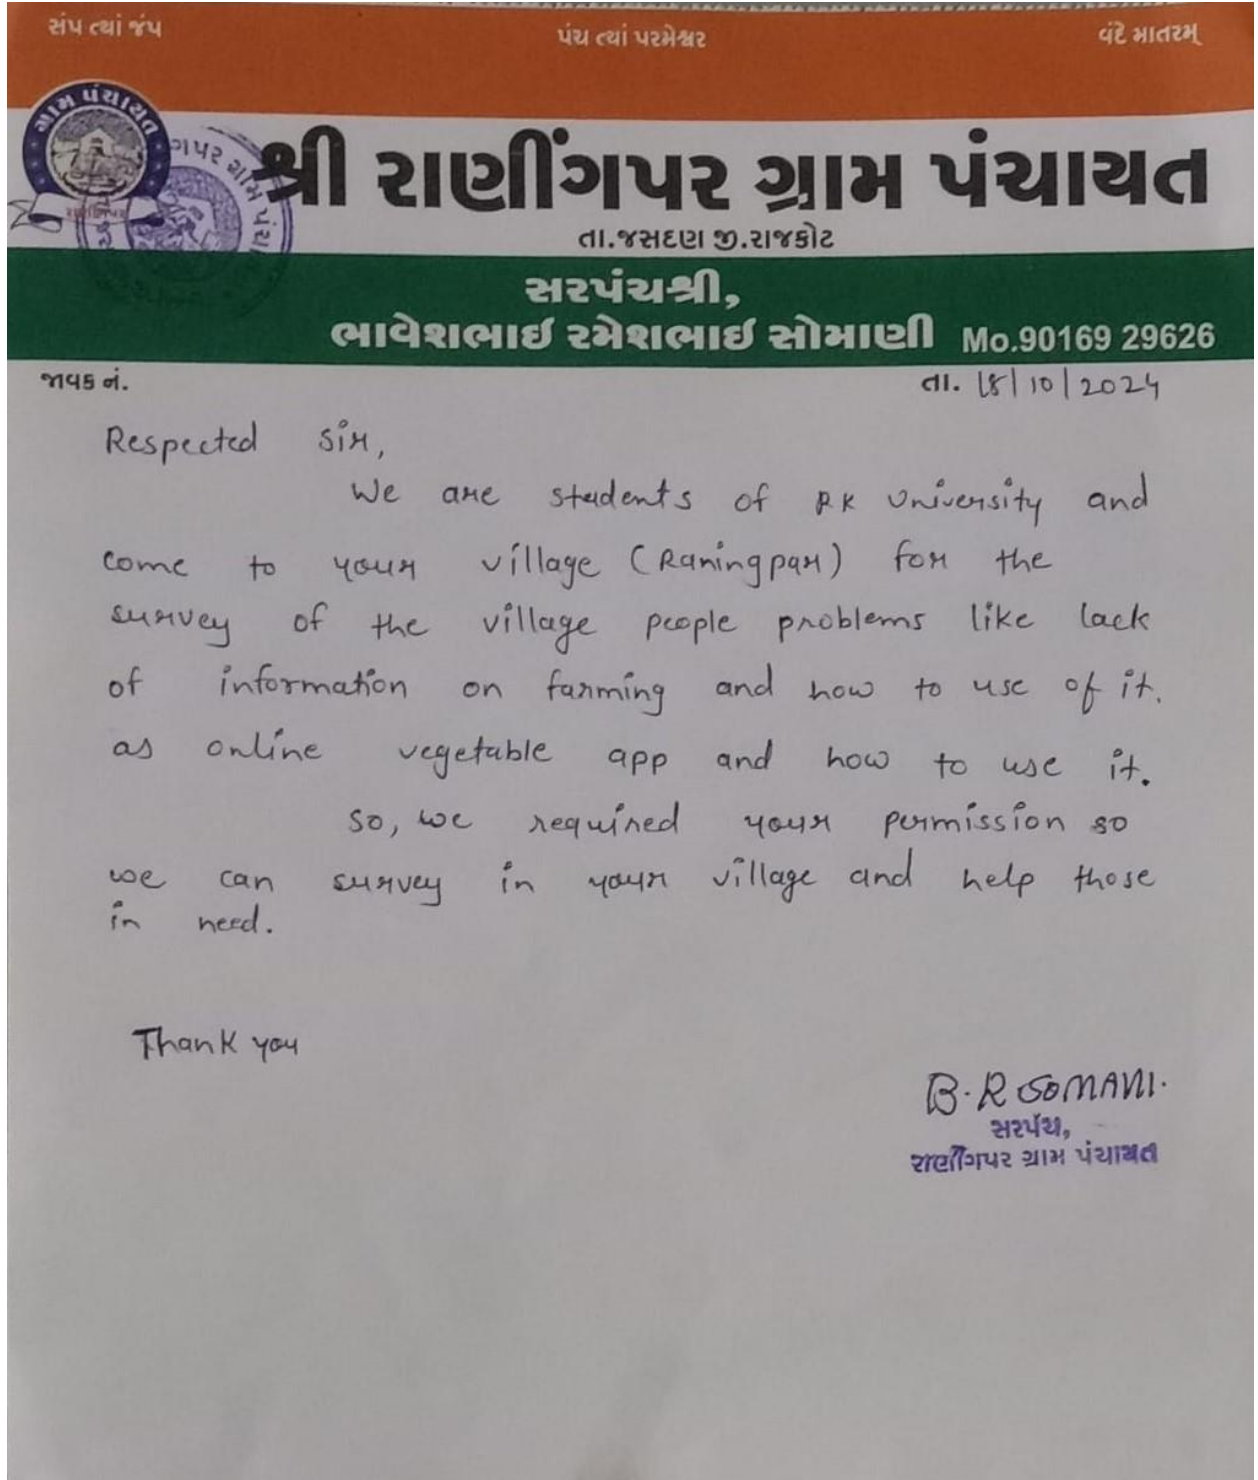 સંપ ત્યાં જંપ
પંચ ત્યાં પરમેશ્વર
વંદે માતરમ્
ગ્રામ પંચાયત
શ્રી રાણીંગપર ગ્રામ પંચાયત
તા.જસદણ જી.રાજકોટ
સરપંચશ્રી,
ભાવેશભાઇ રમેશભાઇ સોમાણી Mo.90169 29626
જાવક નં.
તા. 18/10/2024
Respected Sir,
We are students of RK University and
come to your village (Raningpar) for the
survey of the village people problems like lack
of information on farming and how to use of it.
as online vegetable app and how to use it.
So, we required your permission so
we can survey in your village and help those
in need.
Thank you
B.R SOMANI.
સરપંચ,
રાણીંગપર ગ્રામ પંચાયત